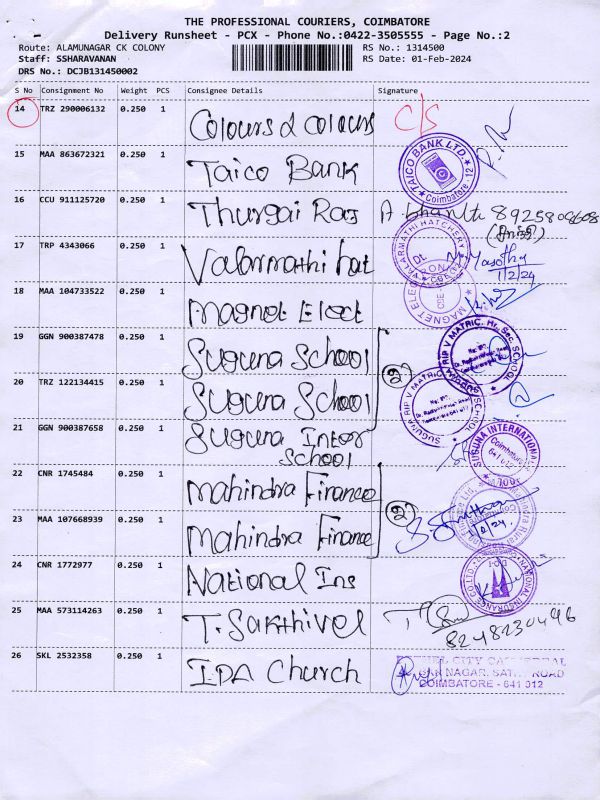 THE PROFESSIONAL COURIERS, COIMBATORE
Delivery Runsheet - PCX - Phone No.:0422-3505555 - Page No.:2
Route: ALAMUNAGAR CK COLONY
RS No.: 1314500
Staff: SSHARAVANAN
RS Date: 01-Feb-2024
DRS No.: DCJB131450002
S No Consignment No Weight PCS Consignee Details Signature
14 TRZ 290006132 0.250 1 Colours & Colours C/S
15 MAA 863672321 0.250 1 Taico Bank
TAICO BANK LTD. Coimbatore
16 CCU 911125720 0.250 1 Thurgai Raj
17 TRP 4343066 0.250 1 Valarmathi hat
VALARMATHI HATCHERY
1/2/24
18 MAA 104733522 0.250 1 Magnet Elect
MAGNET ELEC
19 GGN 900387478 0.250 1 Suguna School
SUGUNA RIP V MATRIC. Hr. Sec. SCHOOL
20 TRZ 122134415 0.250 1 Suguna School
(2)
SUGUNA RIP V MATRIC. SCHOOL
21 GGN 900387658 0.250 1 Suguna Inter
School
SUGUNA INTERNATIONAL
Coimbatore
22 CNR 1745484 0.250 1 Mahindra Finance
23 MAA 107668939 0.250 1 Mahindra Finance
(2)
24 CNR 1772977 0.250 1 National Ins
NATIONAL INSURANCE CO LTD.
25 MAA 573114263 0.250 1 T. Sakthivel
8248230496
26 SKL 2532358 0.250 1 IPA Church
CITY
NAGAR, ROAD
COIMBATORE - 641 012